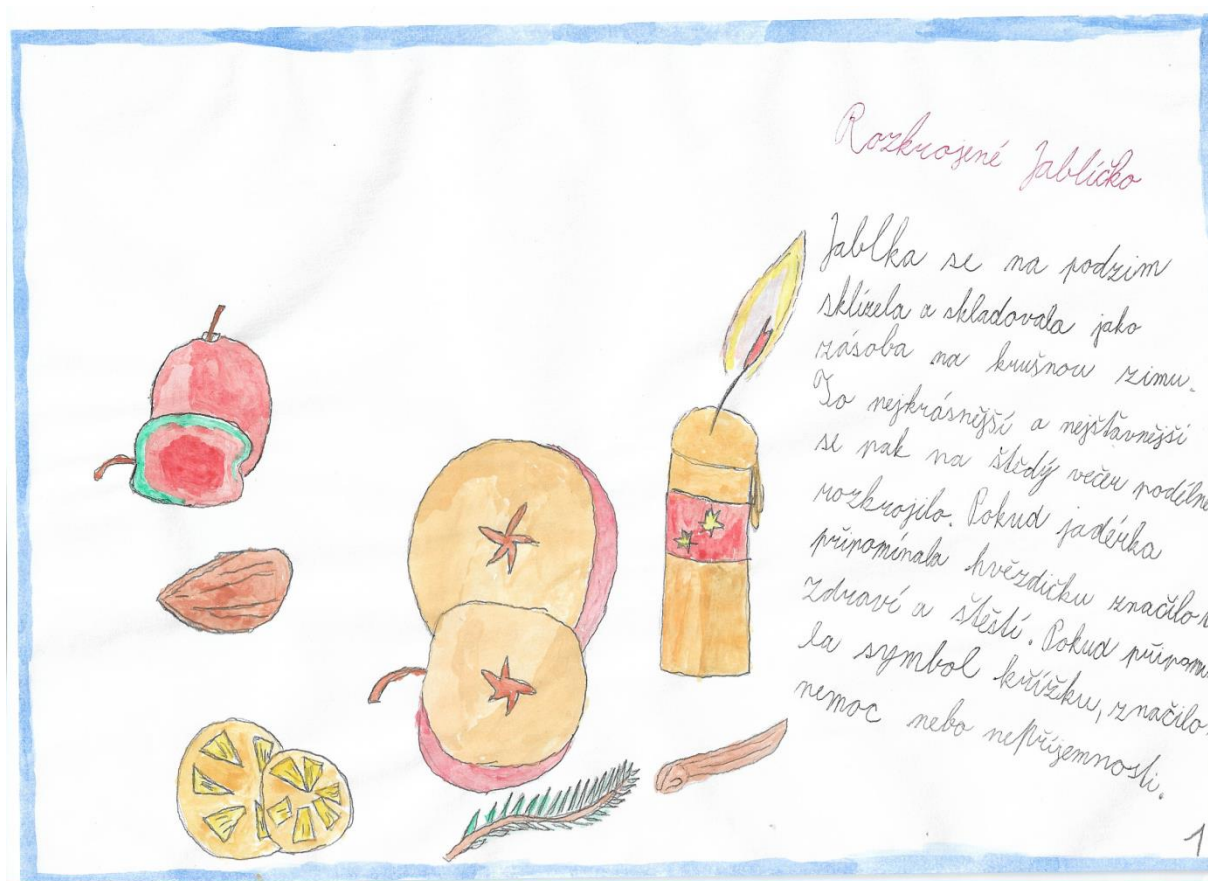 Rozkrojené Jablíčko
Jablka se na podzim
sklízela a skladovala jako
zásoba na krušnou zimu.
To nejkrásnější a nejšťavnější
se pak na štědý večer podélně
rozkrojilo. Pokud jadérka
připomínala hvězdičku značilo
zdraví a štěstí. Pokud
la symbol křížku, značilo
nemoc nebo nepříjemnosti.
1